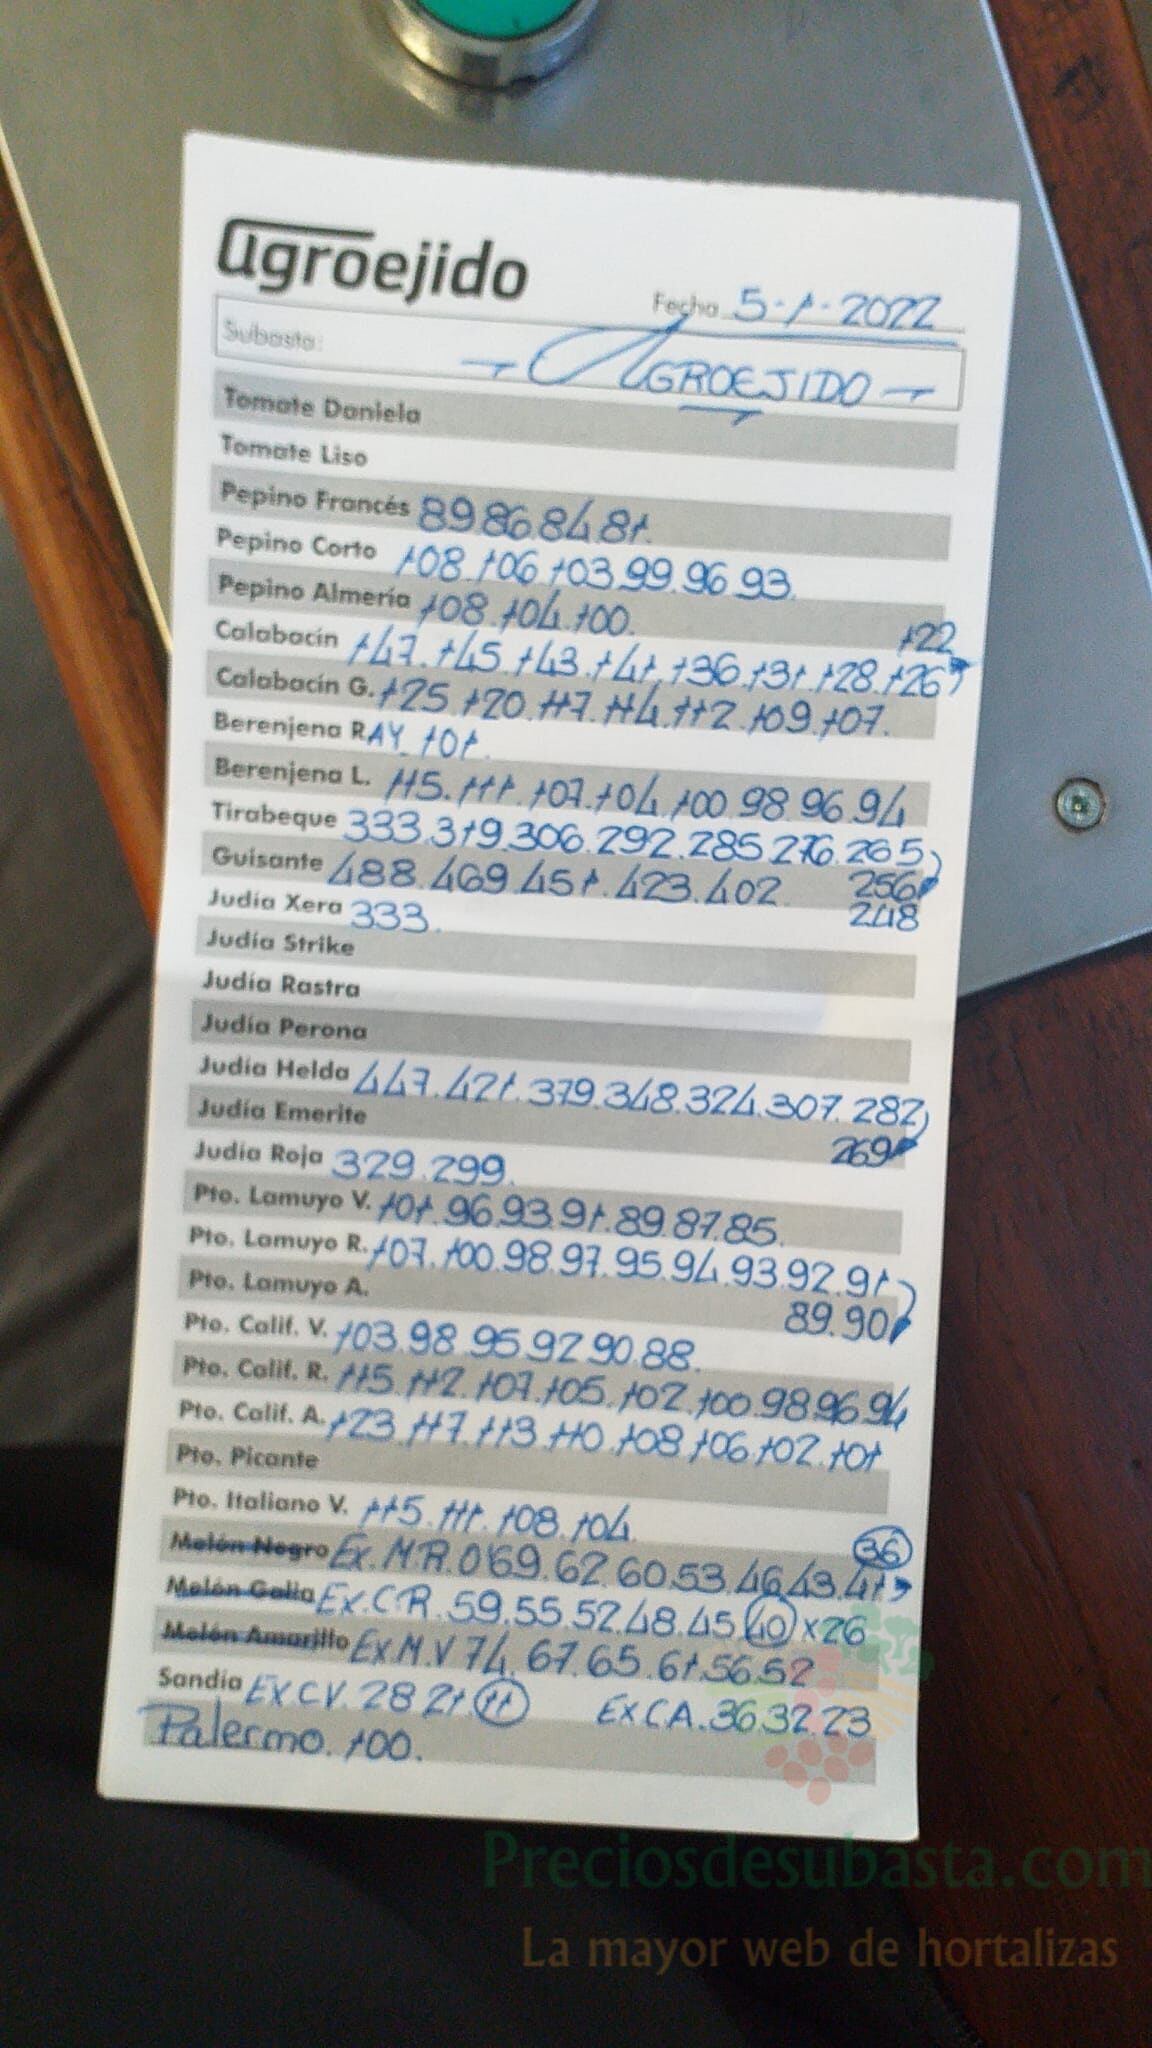 agroejido
Fecha 5-1-2022
Subasta: - AGROEJIDO -
Tomate Daniela
Tomate Liso
Pepino Francés 89.86.84.81.
Pepino Corto 108.106.103.99.96.93.
Pepino Almería 108.104.100.
122
Calabacín 147.145.143.141.136.131.128.126
Calabacín G. 125.120.117.114.112.109.107.
Berenjena RAY. 101.
Berenjena L. 115.111.107.104.100.98.96.94
Tirabeque 333.319.306.292.285.276.265
Guisante 488.469.451.423.402. 256
248
Judía Xera 333.
Judía Strike
Judía Rastra
Judía Perona
Judía Helda 447.421.379.348.324.307.282
Judía Emerite 269
Judía Roja 329.299.
Pto. Lamuyo V. 101.96.93.91.89.87.85.
Pto. Lamuyo R. 107.100.98.97.95.94.93.92.91
Pto. Lamuyo A. 89.90
Pto. Calif. V. 103.98.95.92.90.88.
Pto. Calif. R. 115.112.107.105.102.100.98.96.94
Pto. Calif. A. 123.117.113.110.108.106.102.101
Pto. Picante
Pto. Italiano V. 115.111.108.104.
36
Melón Negro Ex.M.R.0'69.62.60.53.46.43.41
Melón Galia Ex.C.R.59.55.52.48.45.40 x26
Melón Amarillo Ex.M.V 74.67.65.61.56.52
Sandía EX CV. 28 21 11 EXCA.36.32.23
Palermo. 100.
Preciosdesubasta.com
La mayor web de hortalizas